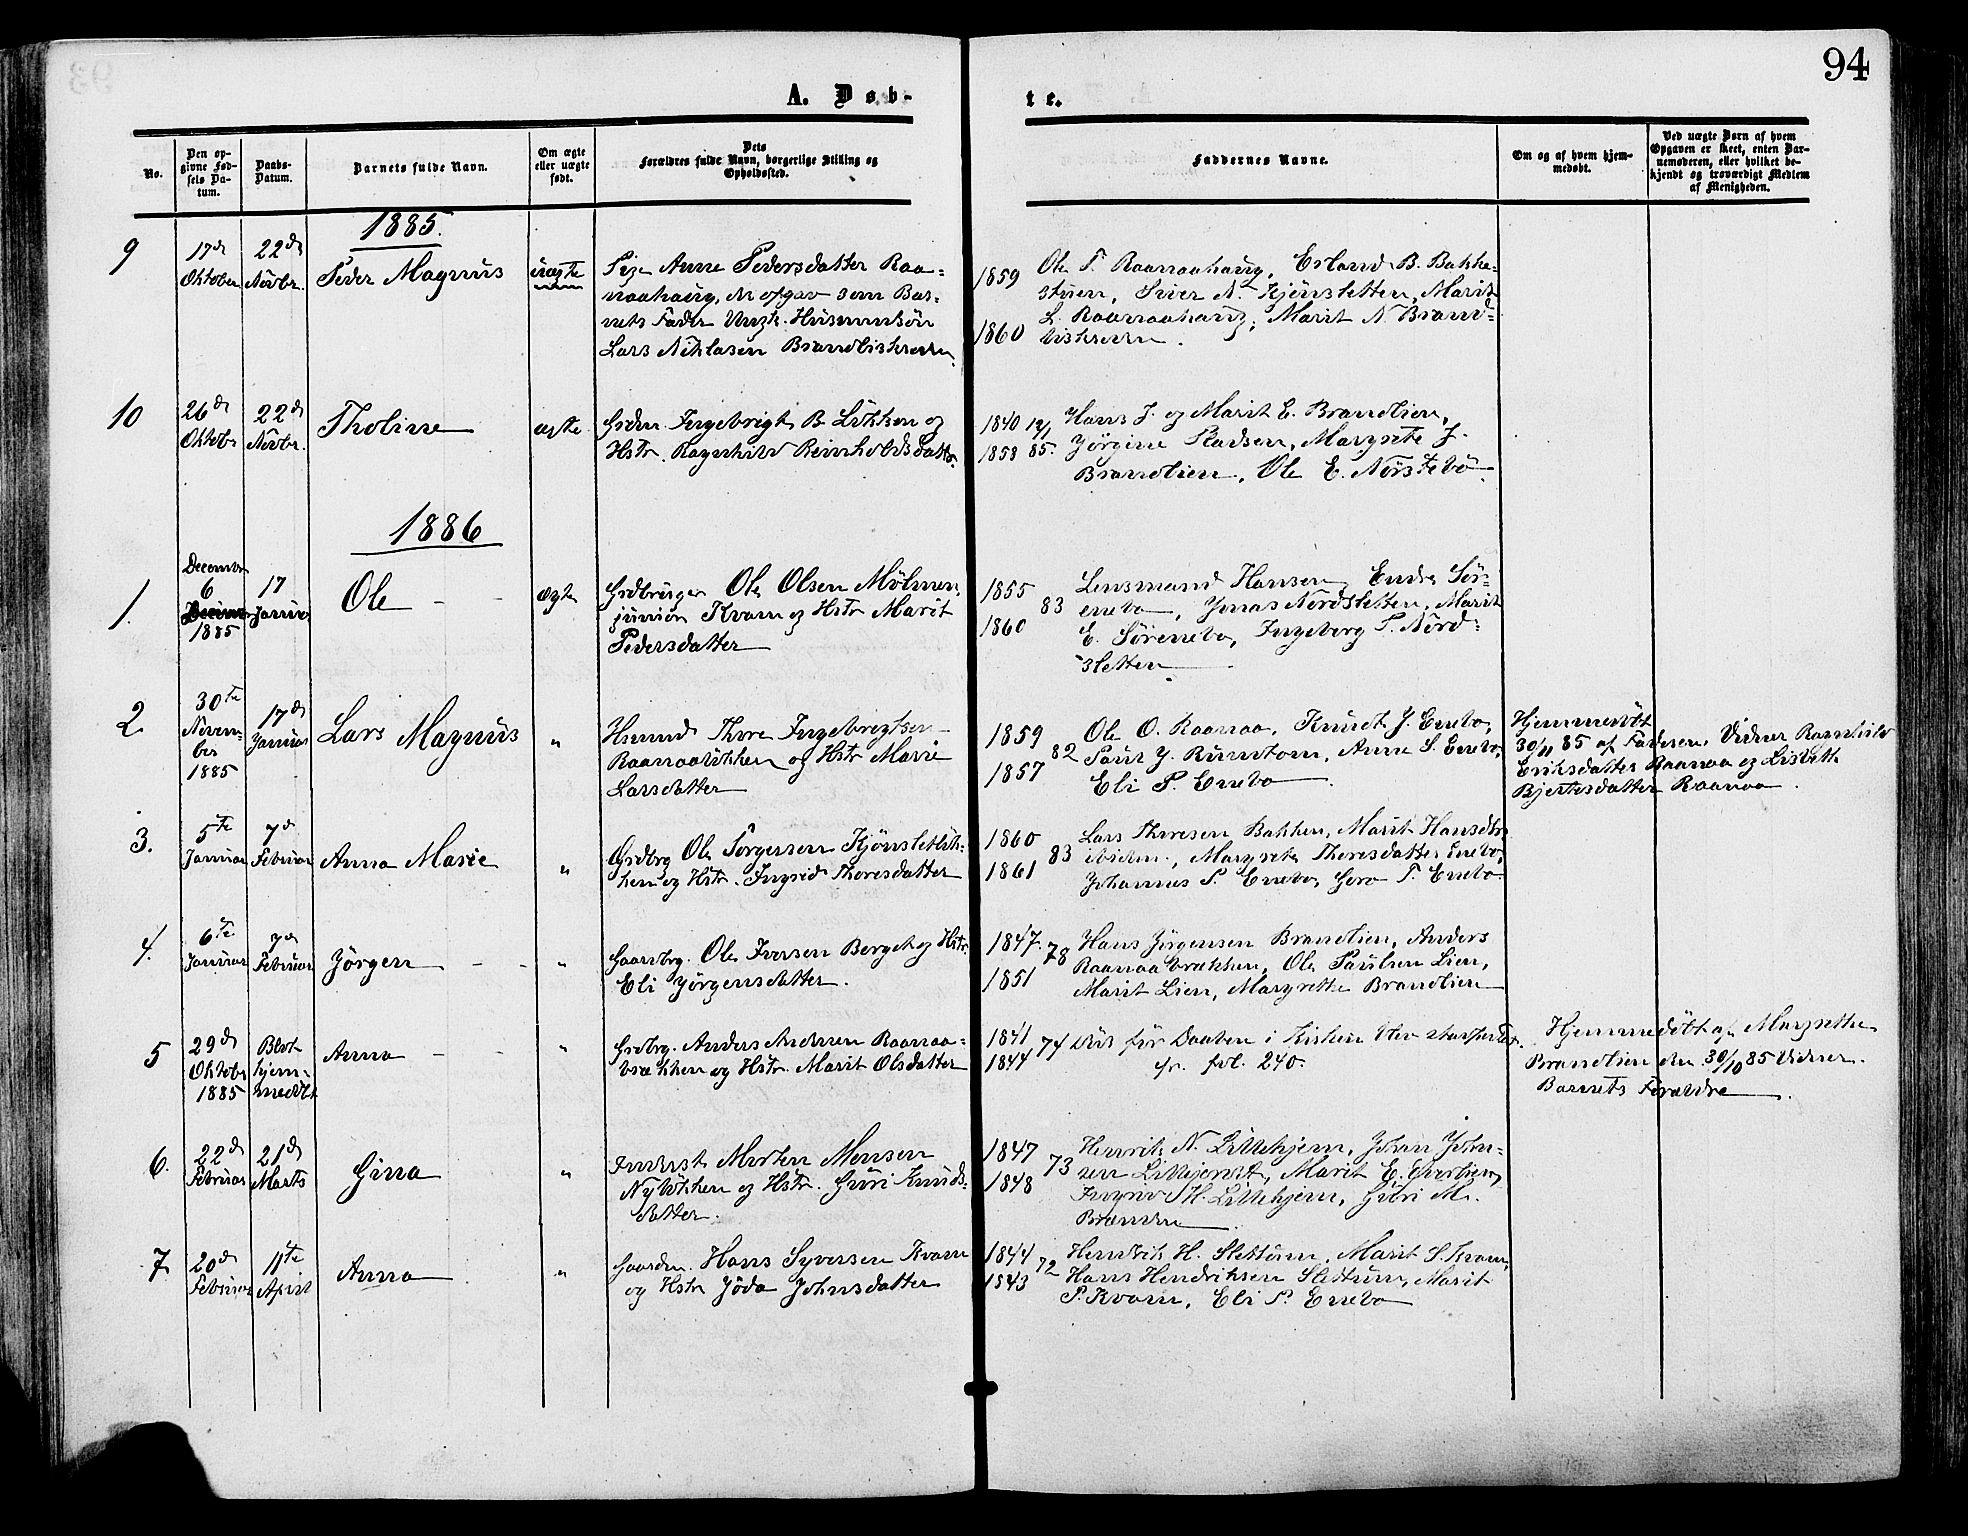 94
A. Døb-
te.
No.
Den op-
givne Fød-
sels Da-
tum.
Daabs-
Datum.
Barnets fulde Navn.
Om ægte
eller uægte
født.
Dets
Forældres fulde Navn, borgerlige Stilling og
Opholdssted.
Faddernes Navne.
Om og af hvem hjem-
medøbt.
Ved uægte Børn af hvem
Opgaven er skeet, enten Bar-
nemoderen, eller hvilket be-
kjendt og troværdigt Medlem
af Menigheden.
1885.
9
17de
Oktober
22de
Novbr.
Peder Magnus
uægte
Pige Anne Pedersdatter Raa-
naahaug, der opgav som Bar-
nets Fader Ungk. Husmandsøn
Lars Niklasen
1859
1860
Ole P. Raanaahaug, Erland B. Bakke-
stuen, Siver N. Kjønsletten, Marit
L. Raanaahaug, Marit N. Brand-
10
26de
Oktober
22de
Novbr.
Tholine
ægte
Ingebrigt B. Løkken og
Hstr. Ragnhild Reinholdsdatter.
1840 12/1
1858 85.
Hans J. og Marit E. Brandlien,
Jørgine Pladsen, Margrete J.
Brandlien, Ole E. Norstebø.
1886
1.
December
6
1885
17
Januar
Ole
ægte
Grdbruger Ole Olsen Mølmen
junior Kvam og Hstr Marit
Pedersdatter
1855
1860
83
Lensmand Hansen, Endre Sør-
enebo, Jonas Nordsletten, Marit
E. Sørenebo, Ingeborg P. Nord-
sletten
2
30te
Novem-
ber
1885
17de
Januar
Lars Magnus
"
Husmd Thore Ingebrigtsen
Raanaaløkken og Hstr Marie
Larsdatter
1859
1857
82
Ole O. Raanaa, Knudt J. Enebo,
Paul J. Rumtom, Anne S. Enebo,
Eli P. Enebo.
Hjemmedøbt
30/11 85 af Faderen. Vidner Ragnhild
Eriksdatter Raanaa og Lisbeth
Bjertesdatter Raanaa.
3.
5te
Januar
7de
Februar
Anna Marie
"
Grdbrg Ole Jørgensen Kjønsletløk-
ken og Hstr. Ingrid Thoresdatter
1860
1861
83
Lars Thoresen Bakken, Marit Hansdtr
ibidem., Margrete Thoresdatter Enebo,
Johannes P. Enebo, Goro P. Enebo.
4.
6te
Januar
7de
Februar
Jørgen
"
Gaardbrg. Ole Iversen Berget og Hstr
Eli Jørgensdatter.
1847
1851
78
Hans Jørgensen Brandlien, Anders
Raanaabrækken, Ole Paulsen Lien,
Marit Lien, Margrethe Brandlien
5
29de
Oktober
1885
Blot
hjem-
medøbt
Anna
"
Grdbrg. Anders Andersen Raanaa-
brækken og Hstr. Marit Olsdatter
1841
1844
74
Død før Daaben i Kirken blev
cfr. fol. 240.
Hjemmedøbt af Margrethe
Brandlien den 30/10 85 Vidner.
Barnets Forældre.
6.
22de
Februar
21de
Marts
Gina
"
Inderst Morten Monsen
Nyløkken og Hstr. Guri Knuds-
datter.
1847
1848
73
Henrik N. Lillehjem, Johan Johan-
sen Lillehjem, Marit E.
Ingrid H. Lillehjem, Guri M.
Brænden
7
20de
Februar
11te
April
Anna
"
Gaardm. Hans Syversen Kvam
og Hstr Jøda Johnsdatter
1844
1843
72
Hendrik H. Slettum, Marit S. Kvam,
Hans Hendriksen Slettum, Marit
P. Kvam, Eli P. Enebo